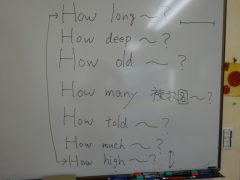 How long ～?
How deep ～?
How old ～?
How many 複数名 ～?
How told ～?
How much ～?
How high ～?